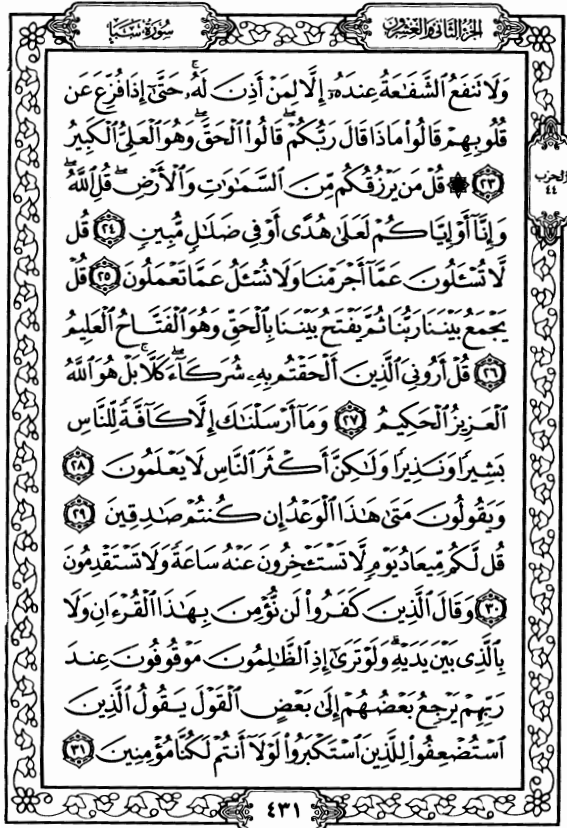 الجزء الثاني والعشرون
سورة سبإ
وَلَا تَنفَعُ الشَّفَاعَةُ عِندَهُۥٓ إِلَّا لِمَنْ أَذِنَ لَهُۥ ۚ حَتَّىٰٓ إِذَا فُزِّعَ عَن
قُلُوبِهِمْ قَالُوا۟ مَاذَا قَالَ رَبُّكُمْ ۖ قَالُوا۟ ٱلْحَقَّ ۖ وَهُوَ ٱلْعَلِىُّ ٱلْكَبِيرُ
الحزب
٤٤
٢٣ ۞ قُلْ مَن يَرْزُقُكُم مِّنَ ٱلسَّمَٰوَٰتِ وَٱلْأَرْضِ ۖ قُلِ ٱللَّهُ ۖ
وَإِنَّآ أَوْ إِيَّاكُمْ لَعَلَىٰ هُدًى أَوْ فِى ضَلَٰلٍ مُّبِينٍ ٢٤ قُل
لَّا تُسْـَٔلُونَ عَمَّآ أَجْرَمْنَا وَلَا نُسْـَٔلُ عَمَّا تَعْمَلُونَ ٢٥ قُلْ
يَجْمَعُ بَيْنَنَا رَبُّنَا ثُمَّ يَفْتَحُ بَيْنَنَا بِٱلْحَقِّ وَهُوَ ٱلْفَتَّاحُ ٱلْعَلِيمُ
٢٦ قُلْ أَرُونِىَ ٱلَّذِينَ أَلْحَقْتُم بِهِۦ شُرَكَآءَ ۖ كَلَّا ۚ بَلْ هُوَ ٱللَّهُ
ٱلْعَزِيزُ ٱلْحَكِيمُ ٢٧ وَمَآ أَرْسَلْنَٰكَ إِلَّا كَآفَّةً لِّلنَّاسِ
بَشِيرًا وَنَذِيرًا وَلَٰكِنَّ أَكْثَرَ ٱلنَّاسِ لَا يَعْلَمُونَ ٢٨
وَيَقُولُونَ مَتَىٰ هَٰذَا ٱلْوَعْدُ إِن كُنتُمْ صَٰدِقِينَ ٢٩
قُل لَّكُم مِّيعَادُ يَوْمٍ لَّا تَسْتَـْٔخِرُونَ عَنْهُ سَاعَةً وَلَا تَسْتَقْدِمُونَ
٣٠ وَقَالَ ٱلَّذِينَ كَفَرُوا۟ لَن نُّؤْمِنَ بِهَٰذَا ٱلْقُرْءَانِ وَلَا
بِٱلَّذِى بَيْنَ يَدَيْهِ ۗ وَلَوْ تَرَىٰٓ إِذِ ٱلظَّٰلِمُونَ مَوْقُوفُونَ عِندَ
رَبِّهِمْ يَرْجِعُ بَعْضُهُمْ إِلَىٰ بَعْضٍ ٱلْقَوْلَ يَقُولُ ٱلَّذِينَ
ٱسْتُضْعِفُوا۟ لِلَّذِينَ ٱسْتَكْبَرُوا۟ لَوْلَآ أَنتُمْ لَكُنَّا مُؤْمِنِينَ ٣١
٤٣١